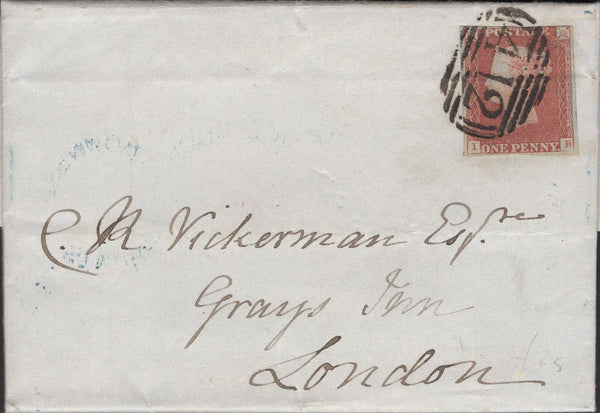 POSTAGE
412
I ONE PENNY B
C. R Vickerman Esqre
Grays Inn
London